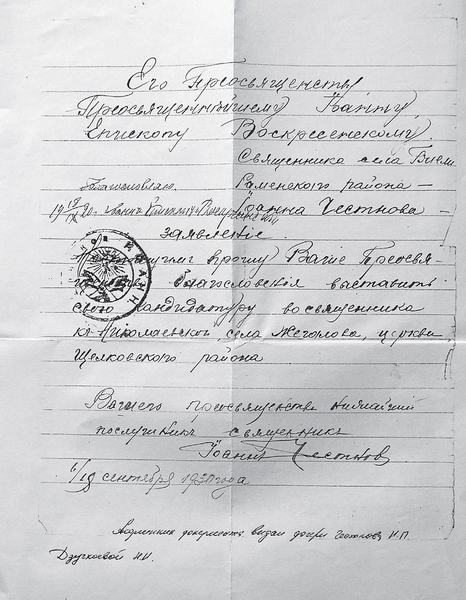 Его Преосвященству
Преосвященнѣйшему Іоанну,
Епископу Воскресенскому
Священника села
Раменского района –
Благословляю.
Іоанна Честнова –
заявленіе.
прошу Ваше Преосвя-
благословенія выставить
свою кандидатуру во священника
к Николаевской, села Жегалова, церкви
Щелковского района
Вашего преосвященства нижайший
послушникъ священникъ
Іоаннъ Честнов
сентября 1930 года
Подлинник документа выдан дочери Честнова И.П.